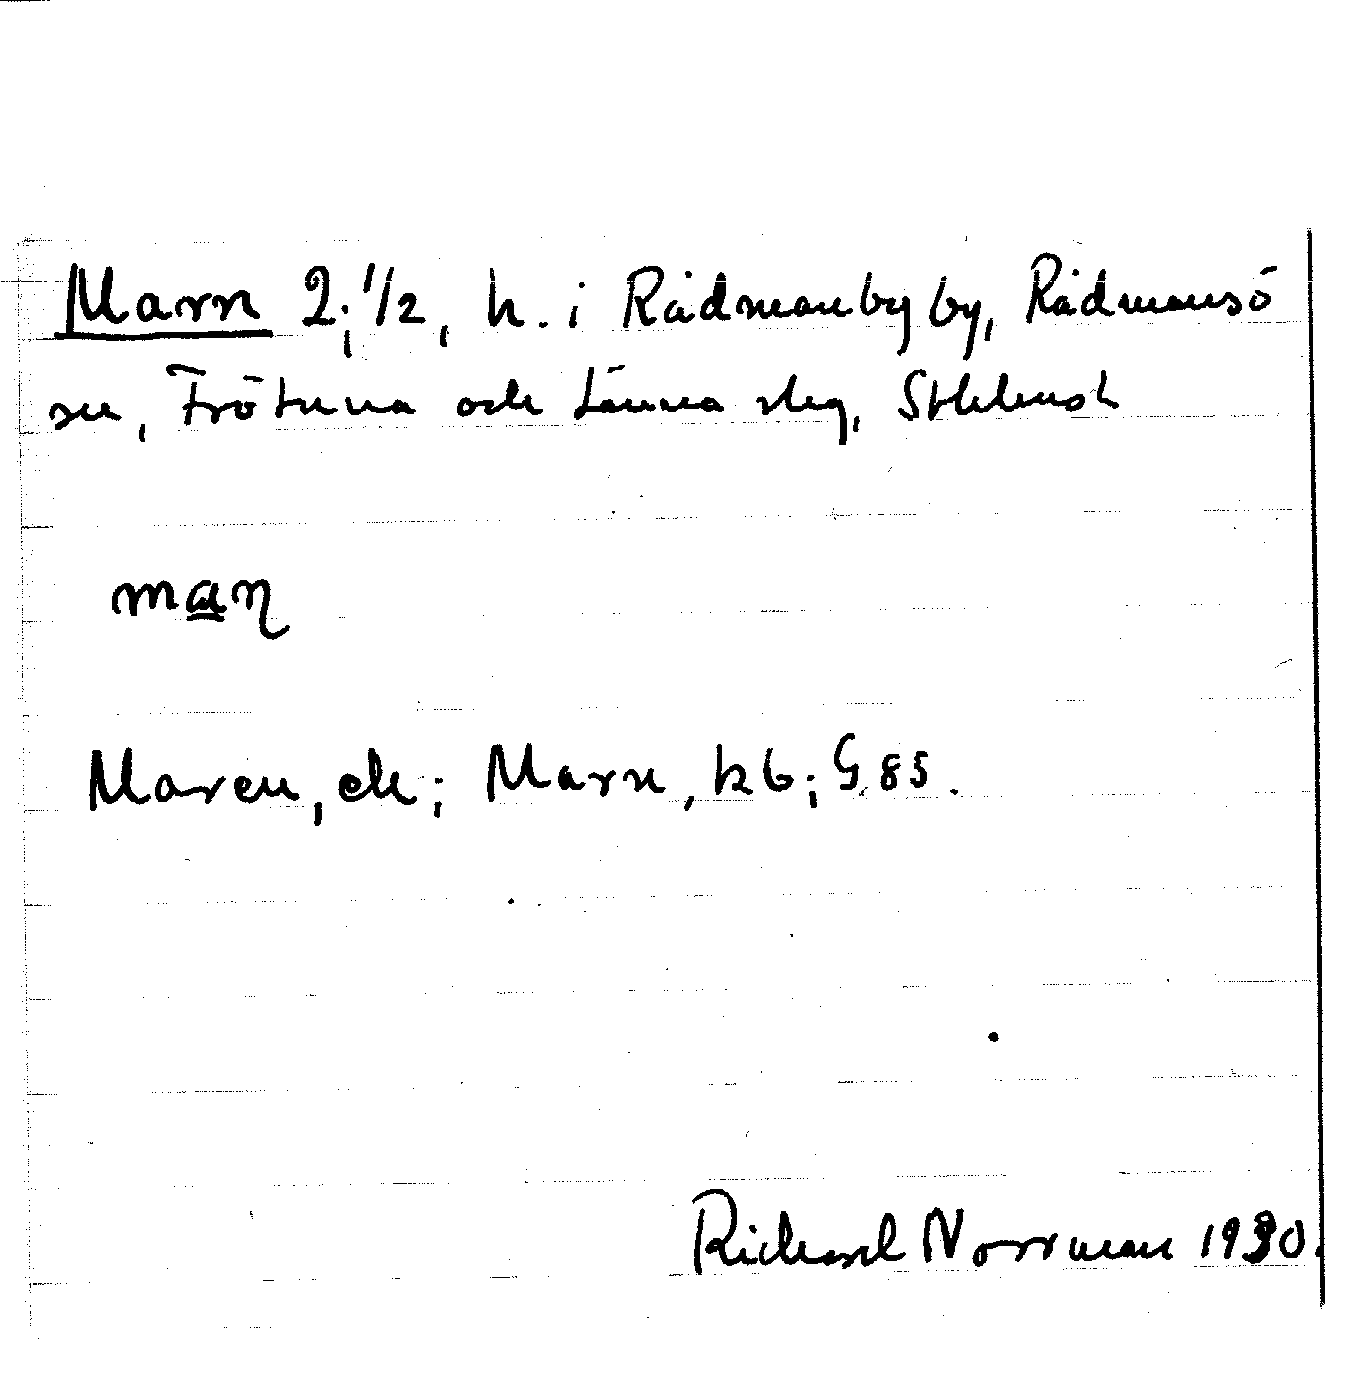 Marn 2; 1/2, h. i Rådmanby by, Rådmansö
sn, Frötuna och Länna slag, Sthlms l
maɳ
Maren, ek; Marn, kb; G 85.
Richard Norrman 1930.